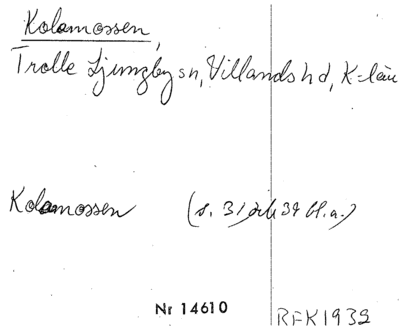 Kolamossen,
Trolle Ljungby sn, Villands hd, K-län
Kolamossen (s. 31 och 34 bl.a.)
Nr 14610 RFK1932